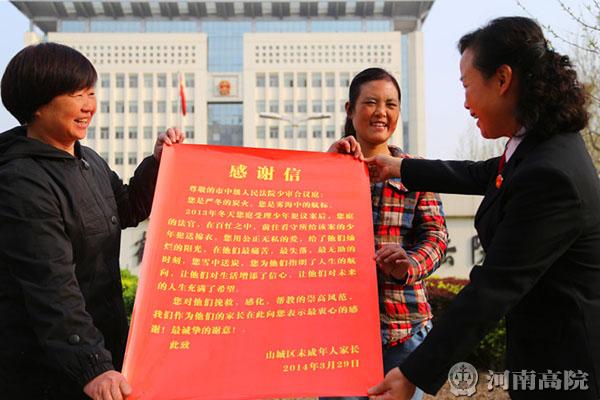 感谢信
尊敬的市中级人民法院少审合议庭：
您是严冬的炭火，您是雾海中的航标，
2013年冬天您庭受理少年犯议案后，您庭
的法官，在百忙之中，前往看守所给该案的少
年犯送棉衣。您用公正无私的爱，给了他们灿
烂的阳光，在他们最痛苦、最失落、最无助的
时刻，您雪中送炭，您为他们指明了人生的航
向，让他们对生活增添了信心，让他们对未来
的人生充满了希望。
您对他们挽救，感化，帮教的崇高风范，
我们作为他们的家长在此向您表示最衷心的感
谢！最诚挚的谢意！
此致
山城区未成年人家长
2014年3月29日
河南高院